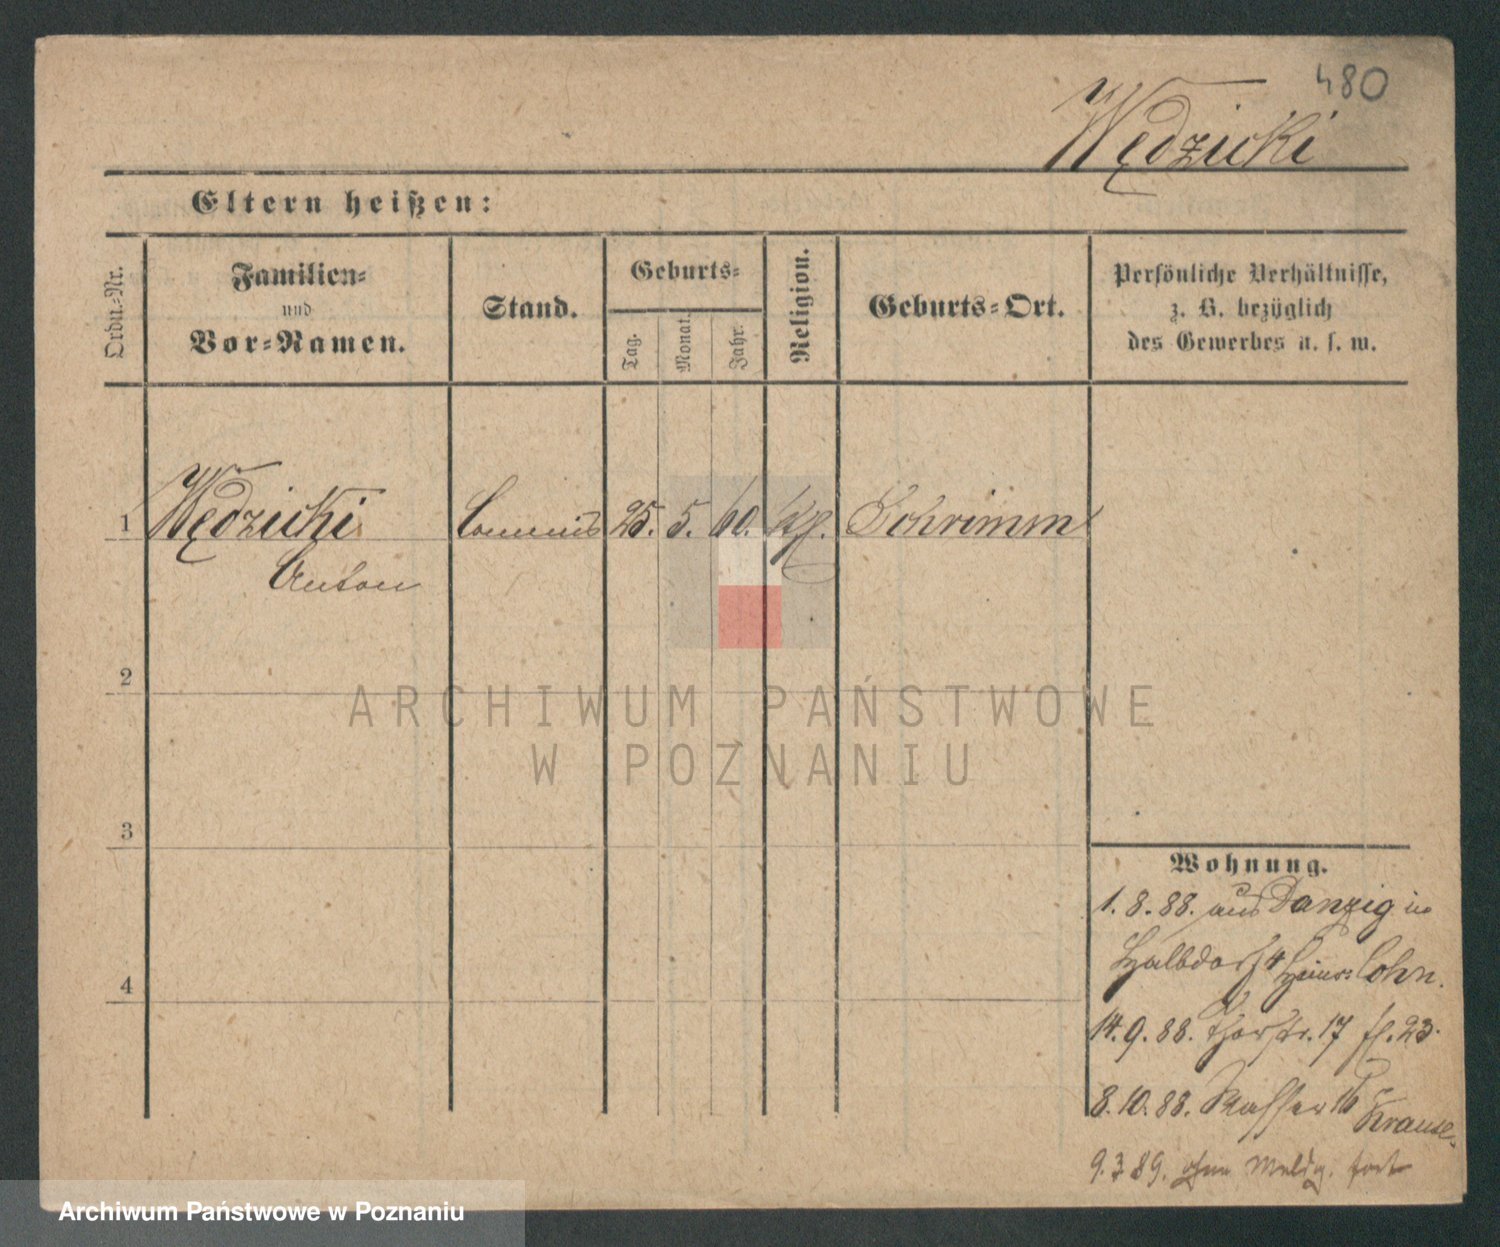 480
Wędzicki
Eltern heißen:
Ordn.-Nr.
Familien-
und
Vor-Namen.
Stand.
Geburts-
Tag.
Monat.
Jahr.
Religion.
Geburts-Ort.
Persönliche Verhältnisse,
z. B. bezüglich
des Gewerbes u. s. w.
1 Wędzicki Commis 25. 5. 60. Schrimm
Anton
2
3
4
ARCHIWUM PAŃSTWOWE
W POZNANIU
Wohnung.
1.8.88. aus Danzig in
Halbdorf 4 Cohn.
14.9.88. 17 23.
8.10.88. Wasser 16 Krause.
9.3.89. ohne Meldg. fort
Archiwum Państwowe w Poznaniu